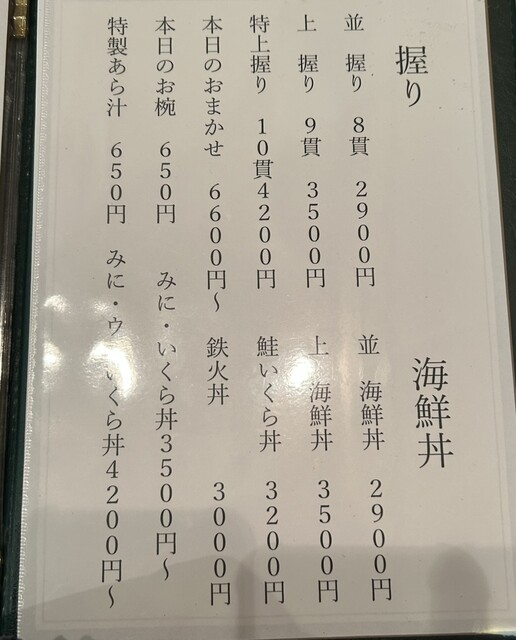 握り
並　握り　８貫　２９００円
上　握り　９貫　３５００円
特上握り　１０貫４２００円
本日のおまかせ　６６００円～
本日のお椀　６５０円
特製あら汁　６５０円
海鮮丼
並　海鮮丼　２９００円
上　海鮮丼　３５００円
鮭いくら丼　３２００円
鉄火丼　３０００円
みに・いくら丼３５００円～
みに・ウ　いくら丼４２００円～